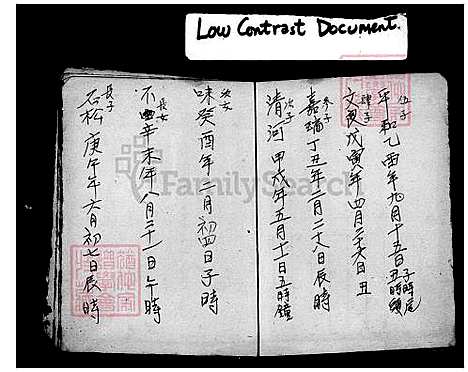 Low Contrast Document.
伍子
平和乙酉年九月十五日子時尾丑時頭
肆子
文 戊寅年四月二十六日丑
叁子
嘉 丁丑年二月二十八日辰時
次子
清河甲戌年五月十一日五時鐘
次女
味癸酉年二月初四日子時
長女
不 辛未年八月二十一日午時
長子
石松庚午年六月初七日辰時
FamilySearch